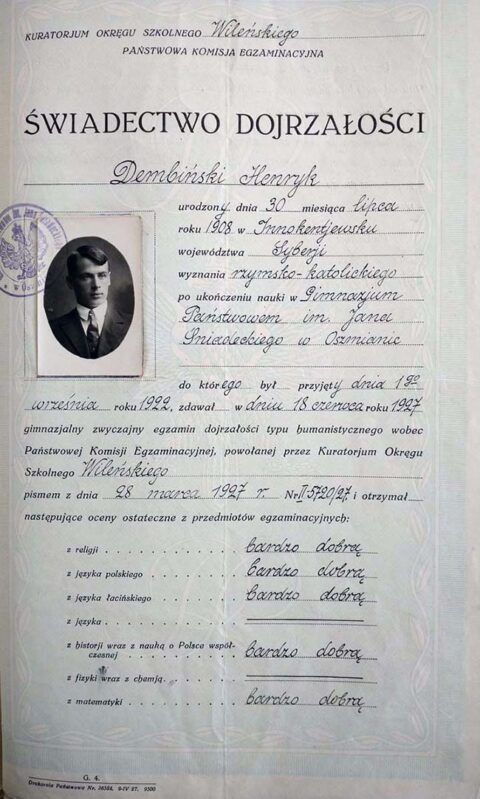 KURATORJUM OKRĘGU SZKOLNEGO Wileńskiego
PAŃSTWOWA KOMISJA EGZAMINACYJNA
ŚWIADECTWO DOJRZAŁOŚCI
Dembiński Henryk
urodzony dnia 30 miesiąca lipca
roku 1908 w Innokentjewsku
województwa Syberji
wyznania rzymsko-katolickiego
po ukończeniu nauki w Gimnazjum
Państwowem im. Jana
Śniadeckiego w Oszmianie
do którego był przyjęty dnia 1go
września roku 1922, zdawał w dniu 18 czerwca roku 1927
gimnazjalny zwyczajny egzamin dojrzałości typu humanistycznego wobec
Państwowej Komisji Egzaminacyjnej, powołanej przez Kuratorjum Okręgu
Szkolnego Wileńskiego
pismem z dnia 28 marca 1927 r. Nr II-5720/27. i otrzymał
następujące oceny ostateczne z przedmiotów egzaminacyjnych:
z religji bardzo dobrą
z języka polskiego bardzo dobrą
z języka łacińskiego bardzo dobrą
z języka
z historji wraz z nauką o Polsce współ-
czesnej bardzo dobrą
z fizyki wraz z chemją
z matematyki bardzo dobrą
G. 4.
Drukarnia Państwowa Nr. 36564. 9-IV 27. 9500